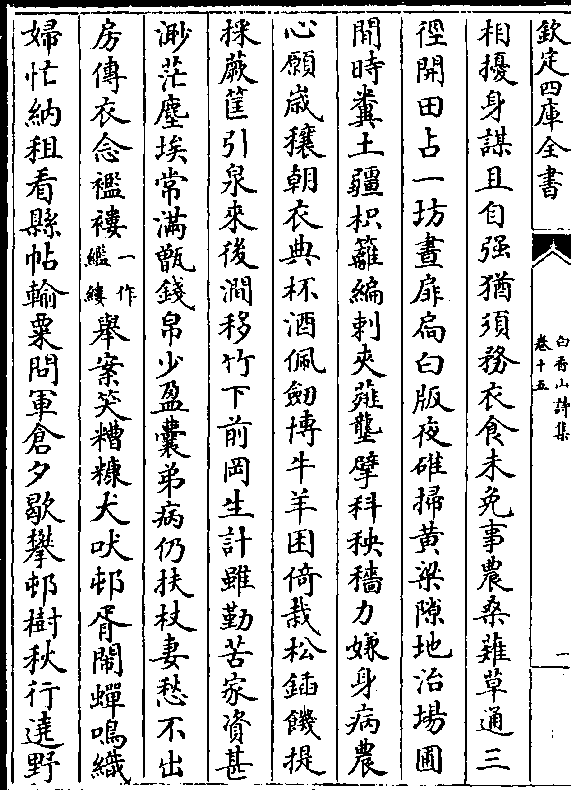 欽定四庫全書
白香山詩集
卷十五
一
相擾身謀且自强猶須務衣食未免事農桑薙草通三
徑開田占一坊晝扉扃白版夜碓掃黃粱隙地治場圃
閒時糞土疆枳籬編刺夾薤壟擘科秧穡力嫌身病農
心願嵗穰朝衣典杯酒佩劒博牛羊困倚栽松鍤饑提
採蕨筐引泉來後澗移竹下前岡生計雖勤苦家資甚
渺茫塵埃常滿甑錢帛少盈囊弟病仍扶杖妻愁不出
房傳衣念襤褸一作繿縷舉案笑糟糠犬吠邨胥鬧蟬鳴織
婦忙納租看縣帖輸粟問軍倉夕歇攀邨樹秋行遶野